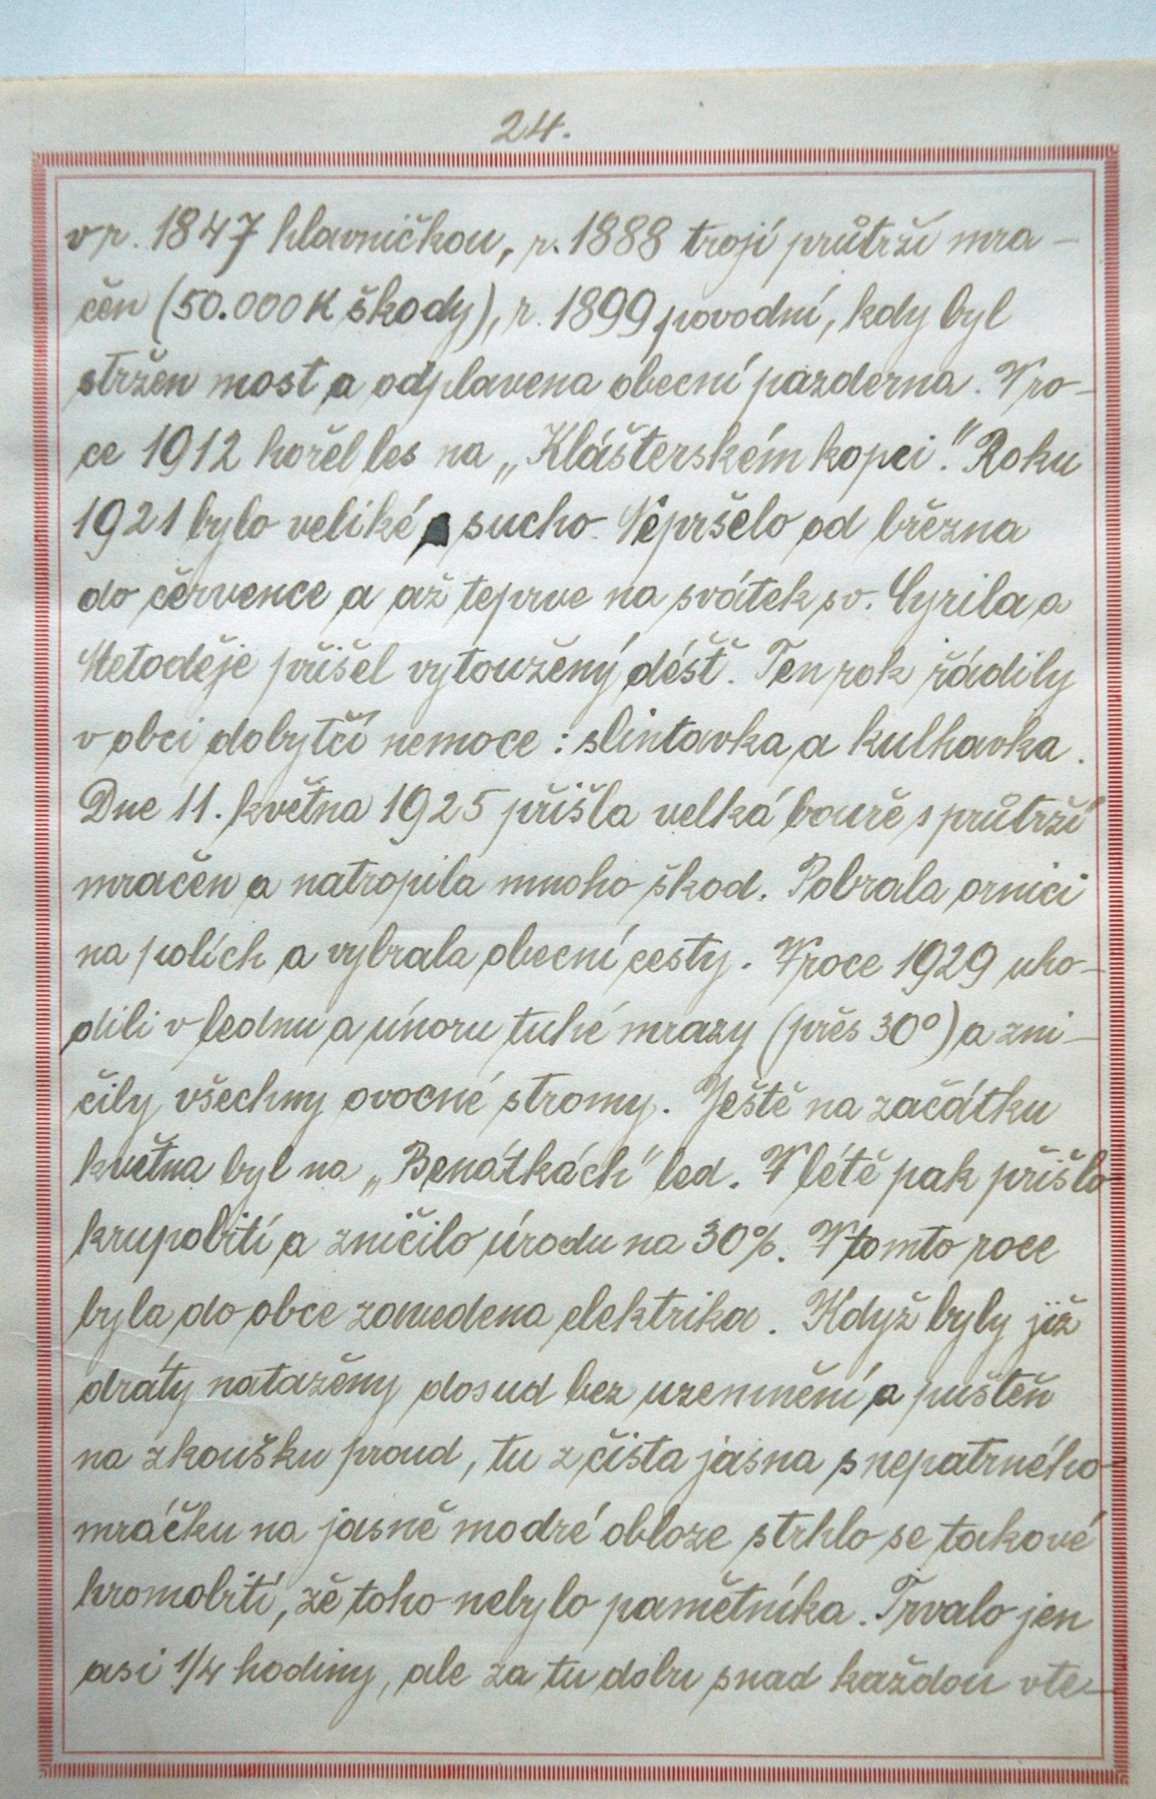 24.
v r. 1847 hlavničkou, r. 1888 trojí průtrží mra-
čen (50.000 K škody), r. 1899 povodní, kdy byl
stržen most a odplavena obecní pazderna. V ro-
ce 1912 hořel les na „Klášterském kopci." Roku
1921 bylo veliké sucho. Nepršelo od března
do července a až teprve na svátek sv. Cyrila a
Metoděje přišel vytoužený déšť. Ten rok řádily
v obci dobytčí nemoce: slintavka a kulhavka.
Dne 11. května 1925 přišla velká bouře s průtrží
mračen a natropila mnoho škod. Pobrala ornici
na polích a vybrala obecní cesty. V roce 1929 uho-
dili v lednu a únoru tuhé mrazy (přes 30°) a zni-
čily všechny ovocné stromy. Ještě na začátku
května byl na „Benátkách" led. V létě pak přišlo
krupobití a zničilo úrodu na 30%. V tomto roce
byla do obce zavedena elektrika. Když byly již
dráty nataženy dosud bez uzemnění a puštěn
na zkoušku proud, tu z čista jasna s nepatrného
mráčku na jasně modré obloze strhlo se takové
hromobití, že toho nebylo pamětníka. Trvalo jen
asi 1/4 hodiny, ale za tu dobu snad každou vte-